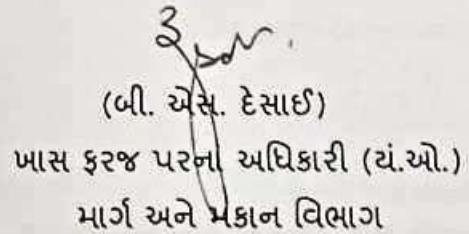 (બી. એસ. દેસાઈ)
ખાસ ફરજ પરના અધિકારી (યં.ઓ.)
માર્ગ અને મકાન વિભાગ